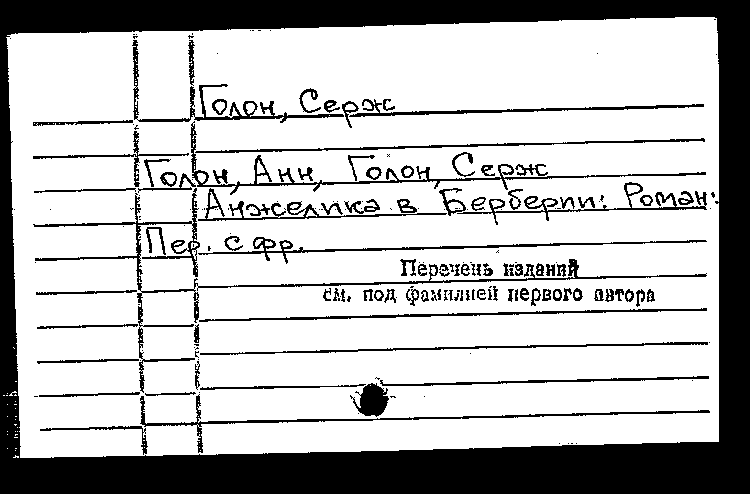 Голон, Серж
Голон, Анн, Голон, Серж
Анжелика в Берберии: Роман:
Пер. с фр.
Перечень изданий
см. под фамилией первого автора